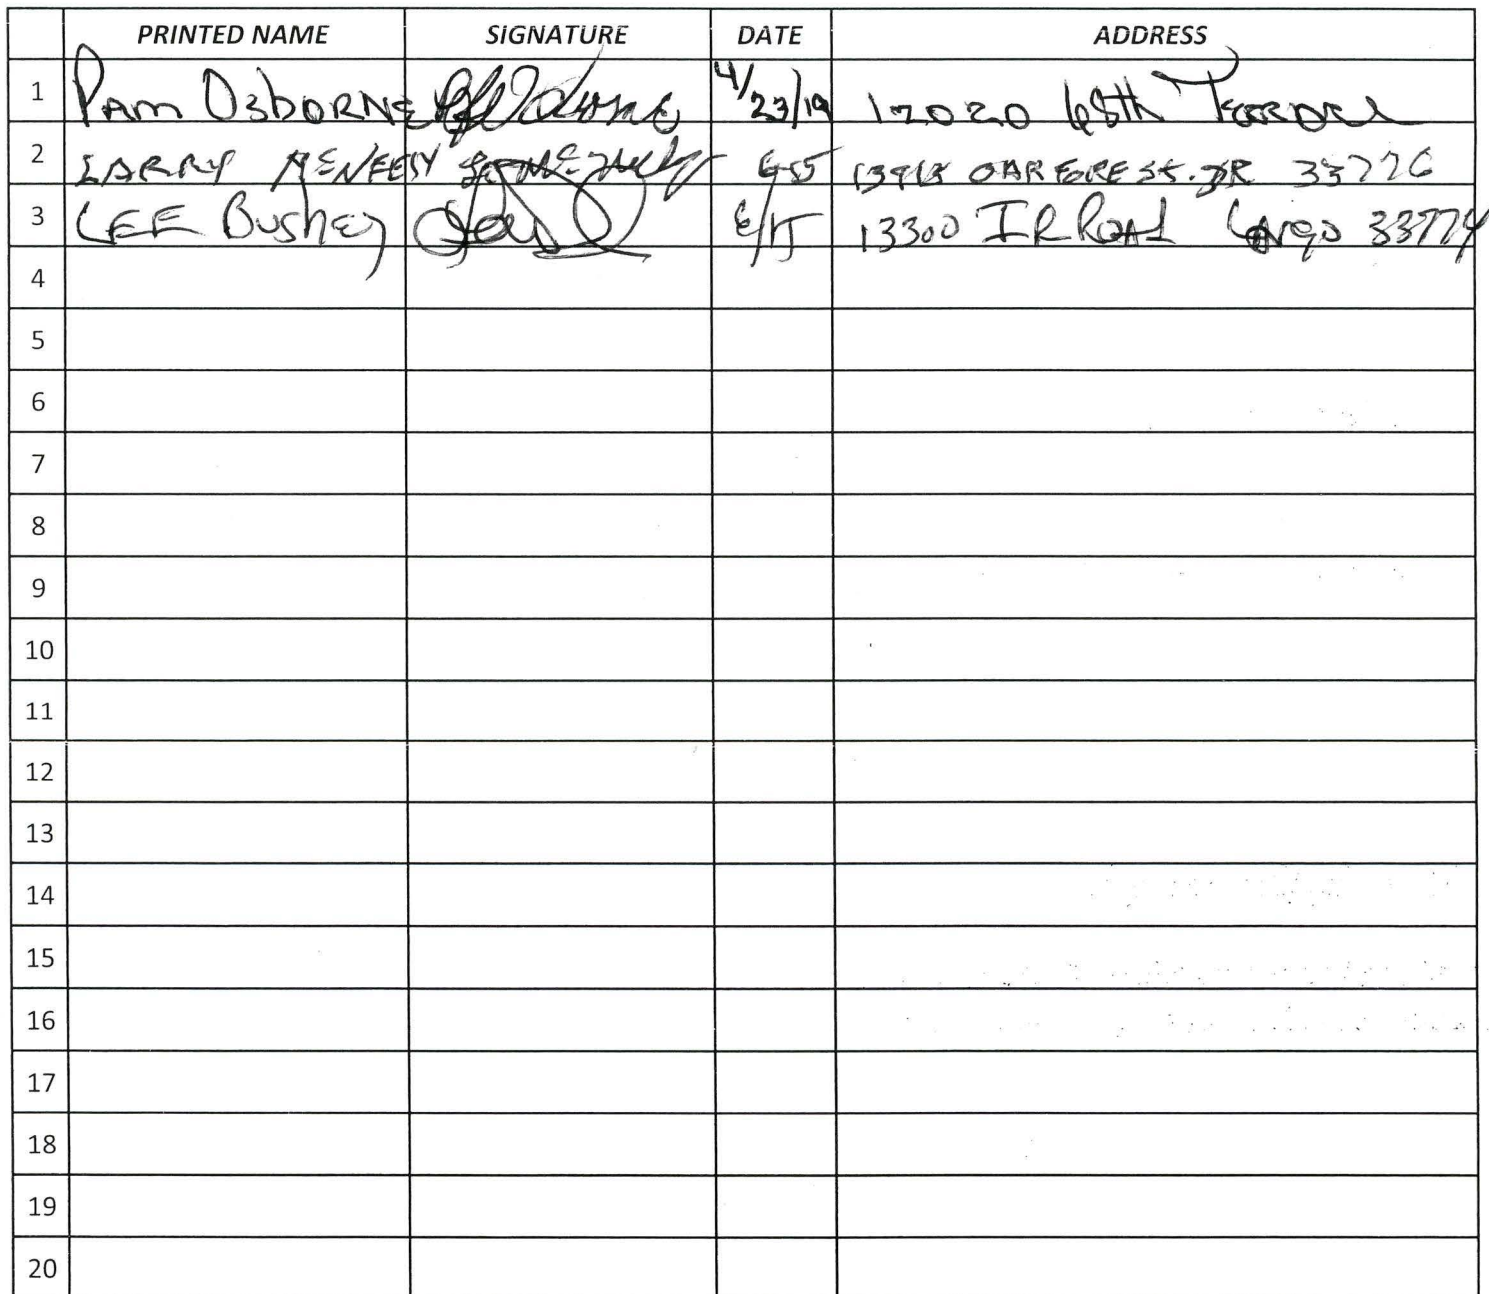 PRINTED NAME SIGNATURE DATE ADDRESS
1 PAM OsbORNE 4/23/19 12020 68th Terrace
2 LARRY MCNEELY 33776
3 LEE Bushey 13300 IR Road Largo 33774
4
5
6
7
8
9
10
11
12
13
14
15
16
17
18
19
20